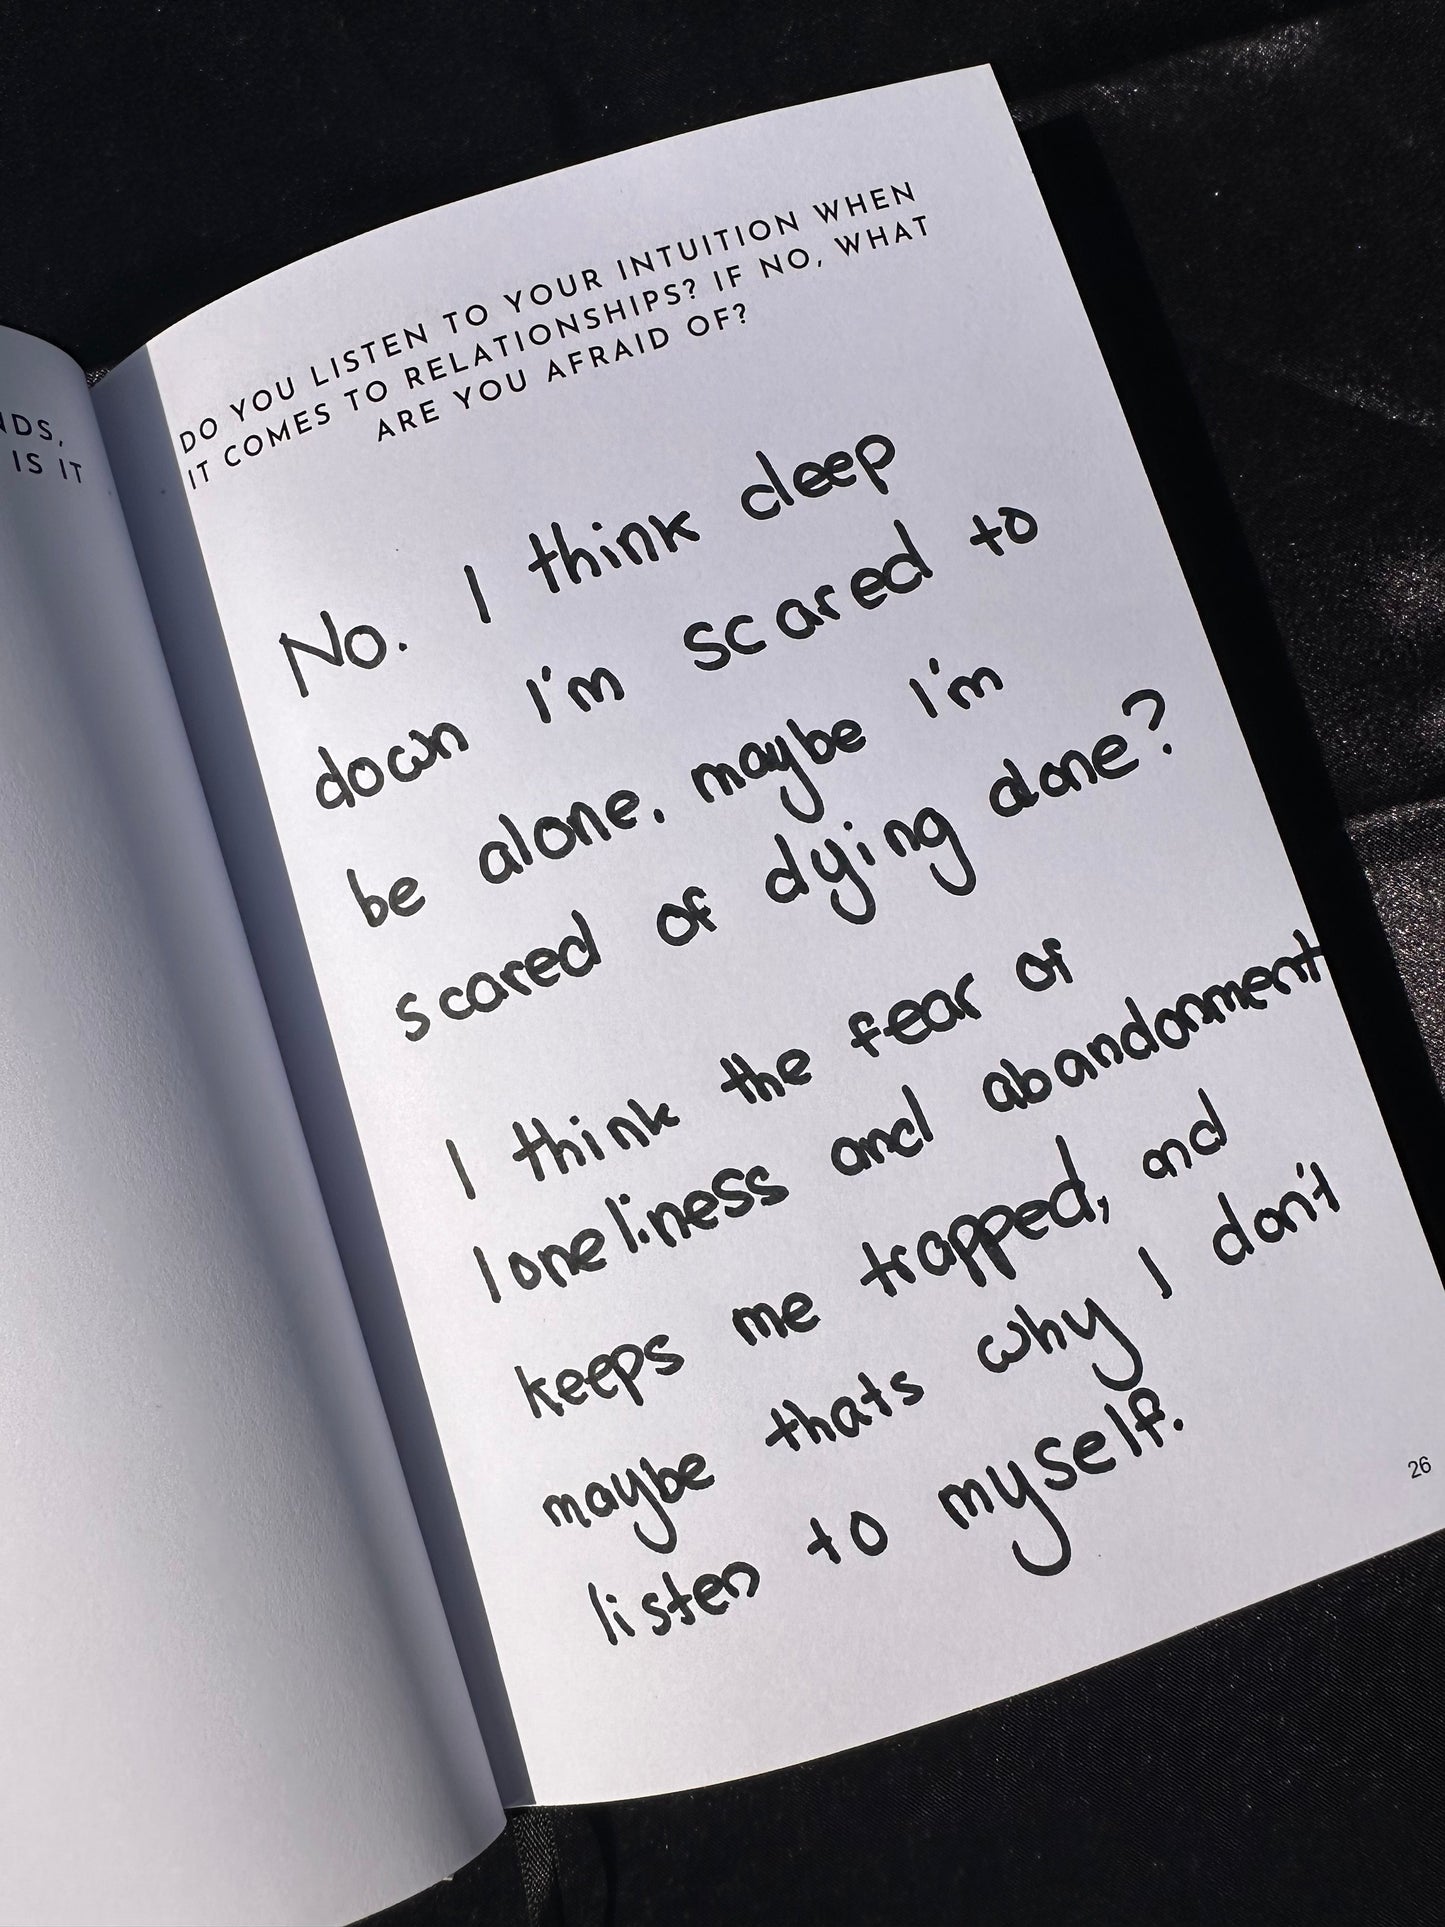 NDS,
IS IT
DO YOU LISTEN TO YOUR INTUITION WHEN
IT COMES TO RELATIONSHIPS? IF NO, WHAT
ARE YOU AFRAID OF?
No. I think deep
down I'm scared to
be alone. maybe I'm
scared of dying alone?
I think the fear of
loneliness and abandonment
keeps me trapped, and
maybe thats why I don't
listen to myself.
26